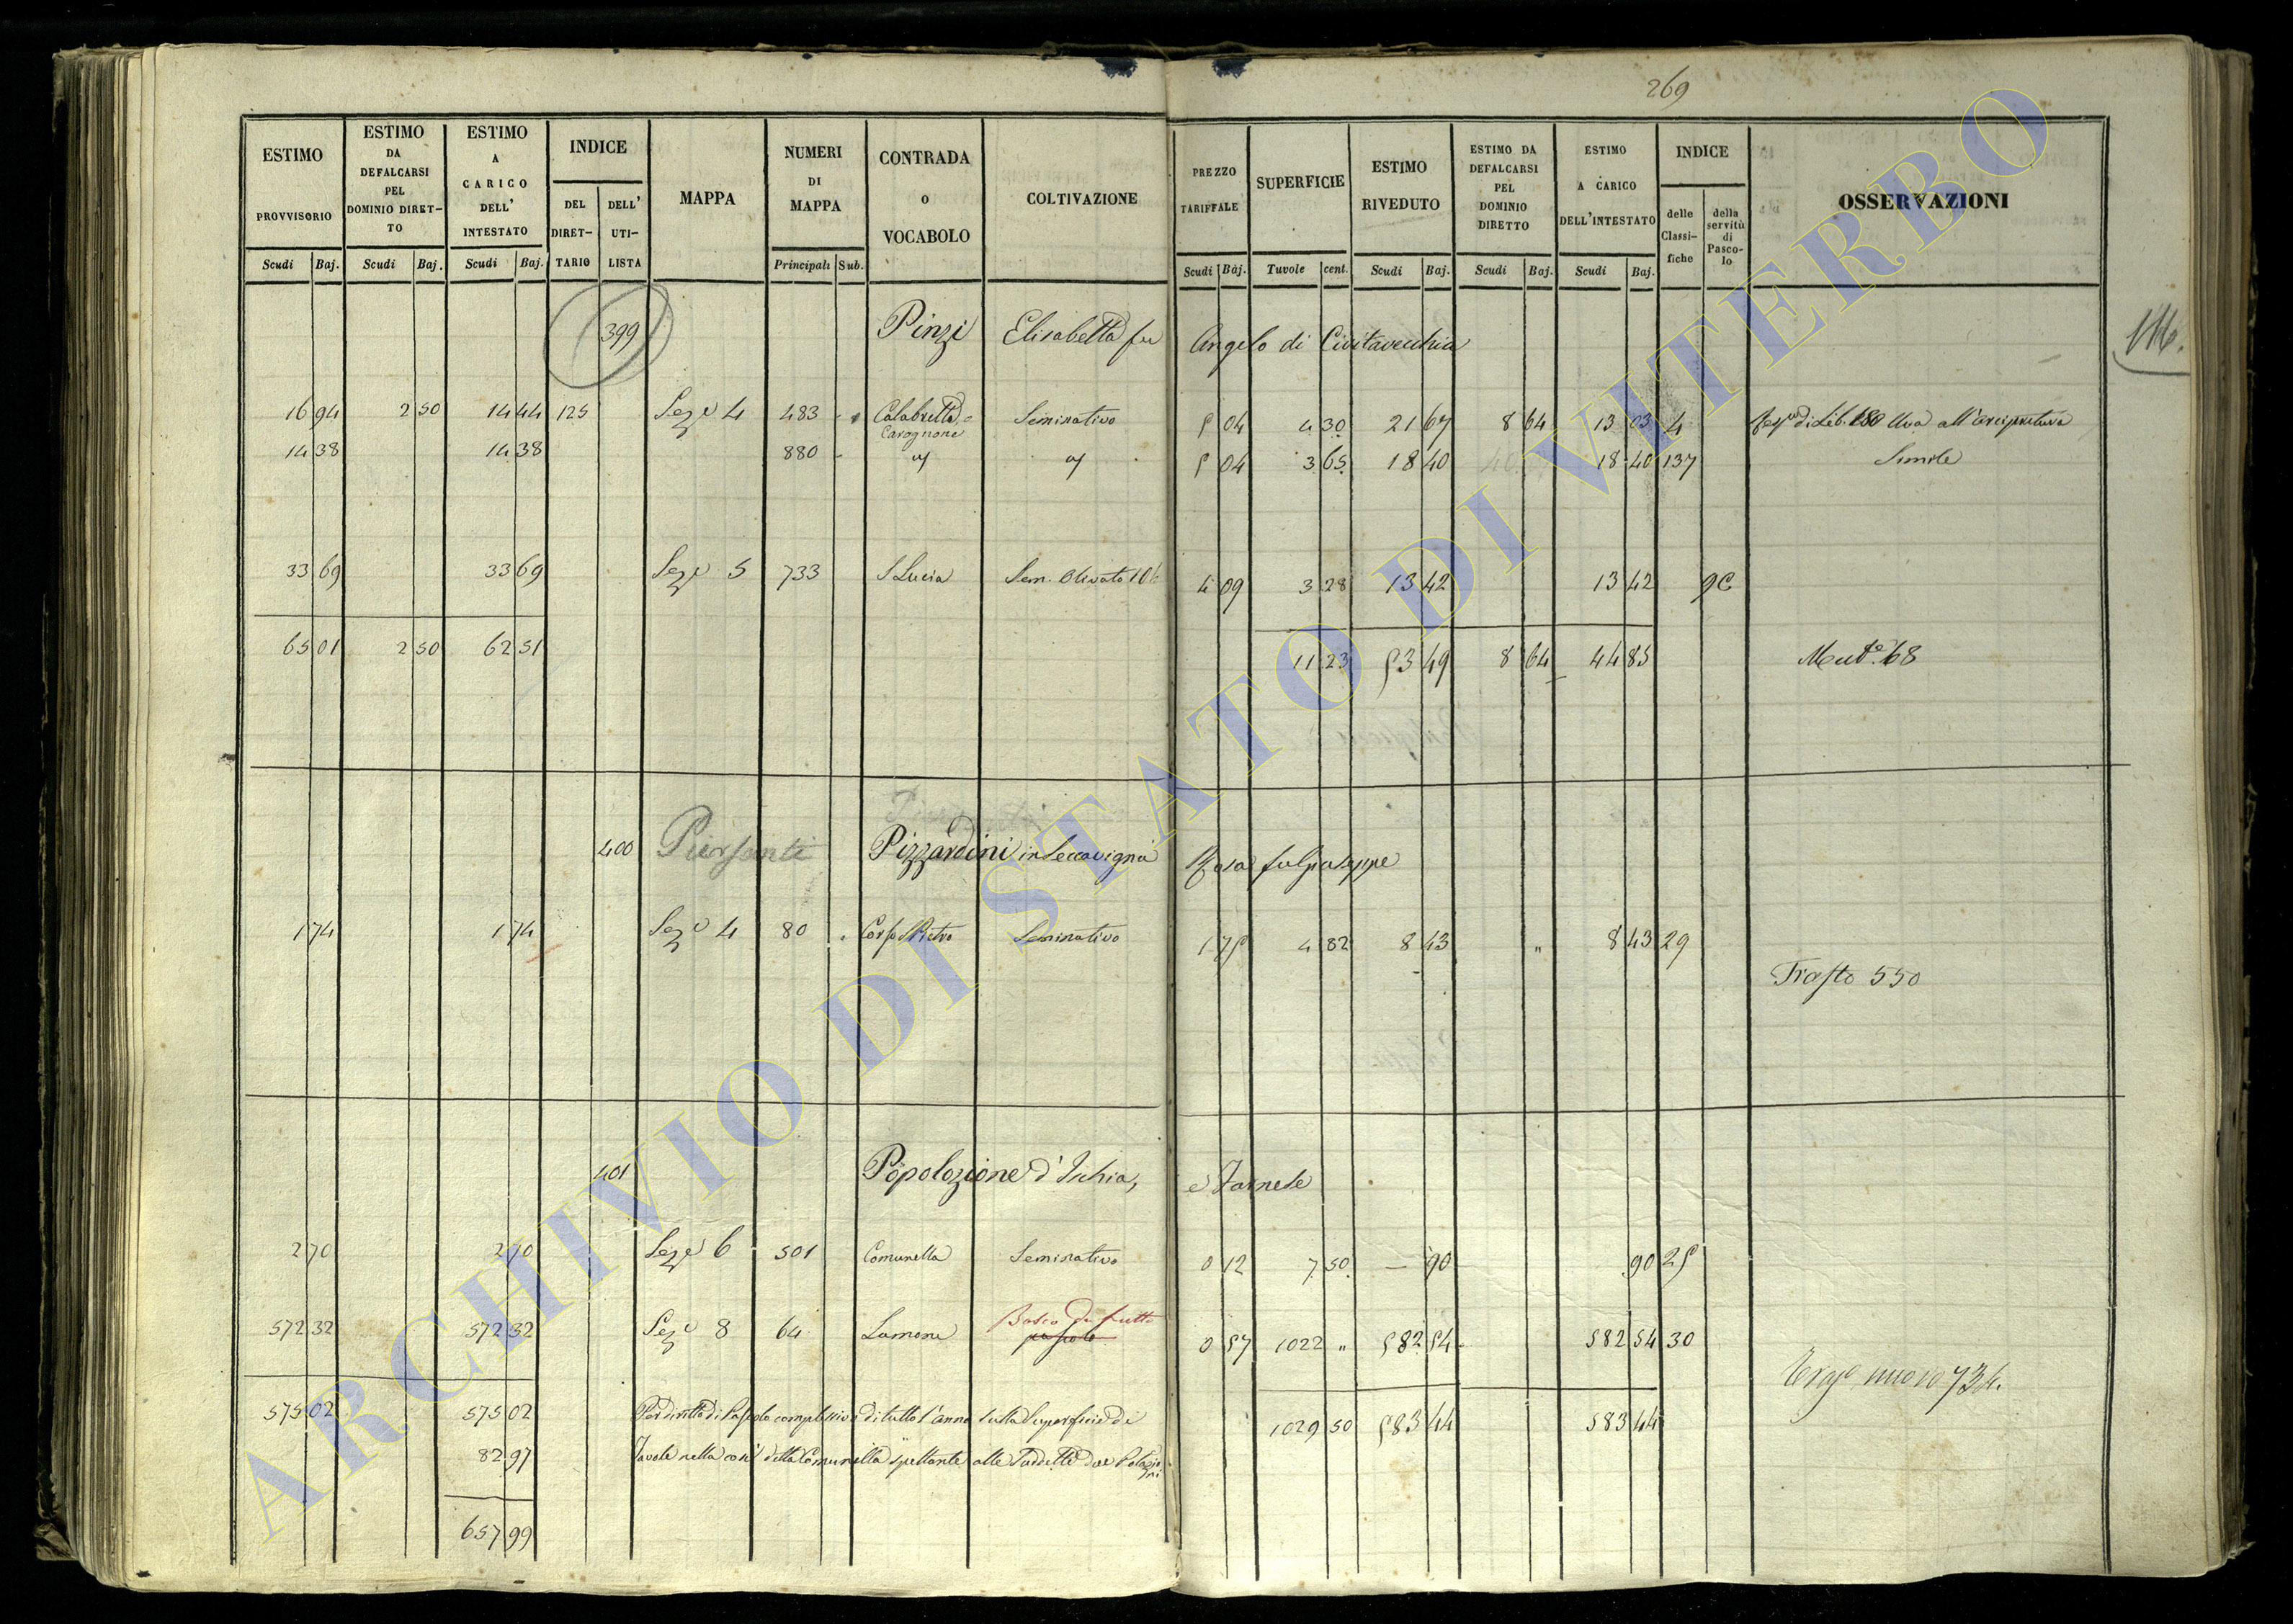 269
ESTIMO PROVVISORIO
ESTIMO DA DEFALCARSI PEL DOMINIO DIRET-TO
ESTIMO A CARICO DELL' INTESTATO
INDICE
DEL DIRET-TARIO
DELL' UTI-LISTA
MAPPA
NUMERI DI MAPPA
CONTRADA o VOCABOLO
COLTIVAZIONE
PREZZO TARIFFALE
SUPERFICIE
ESTIMO RIVEDUTO
ESTIMO DA DEFALCARSI PEL DOMINIO DIRETTO
ESTIMO A CARICO DELL'INTESTATO
INDICE
delle Classi-fiche
della servitù di Pasco-lo
OSSERVAZIONI
Scudi Baj. Scudi Baj. Scudi Baj. Principali Sub. Scudi Baj. Tavole cent. Scudi Baj. Scudi Baj. Scudi Baj.
399 Pinzi Elisabetta fu Angelo di Civitavecchia
116.
16 94 2 50 14 44 125 Sez.e 4 483 Calabretta Carognone Seminativo 5 04 4 30 21 67 8 64 13 03 4 di Lib. 180 Uva all'arcipretura
14 38 14 38 880 5 04 3 65 18 40 18 40 137 Simile
33 69 33 69 Sez.e 5 733 S Lucia Sem. Olivato 4 09 3 28 13 42 13 42 90
65 01 2 50 62 51 11 23 53 49 8 64 44 85 68
400 Piersanti Pizzardini in Seccavigna Rosa fu Giuseppe
1 74 1 74 Sez.e 4 80 Corso S Pietro Seminativo 1 75 4 82 8 43 " 8 43 29
Trasto 550
401 Popolazione d'Ischia, e Farnese
2 70 2 70 Sez.e 6 501 Comunella Seminativo 0 12 7 50 — 90 90 25
572 32 572 32 Sez.e 8 64 Lamone Bosco da frutto pascolo 0 57 1022 " 582 54 582 54 30
nuovo 734.
575 02 575 02 Per diritto di Pascolo complessivo di tutto l'anno sulla Superficie di 1029 50 583 44 583 44
82 97 Tavole nella così detta Comunella spettante alle suddette due Polazioni
657 99
ARCHIVIO DI STATO DI VITERBO